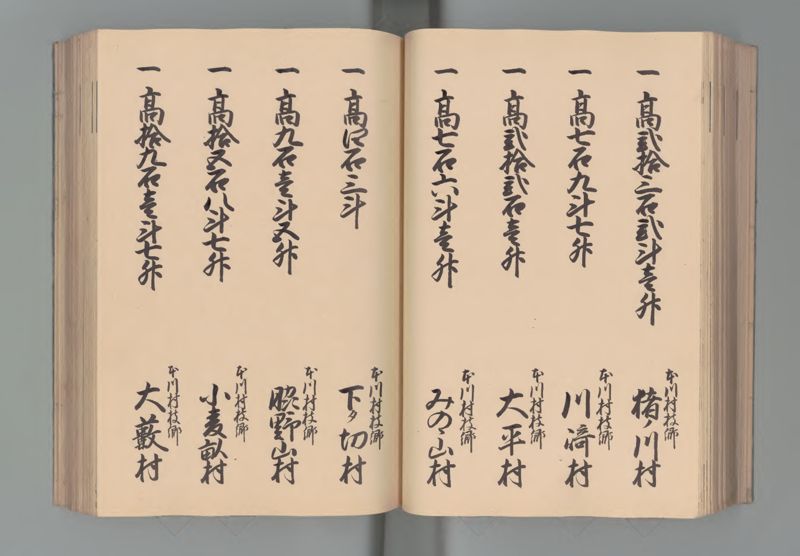 一 高弐拾三石弐斗壱升
本川村枝郷
楮ノ川村
一 高七石九斗七升
本川村枝郷
川﨑村
一 高弐拾弐石壱升
本川村枝郷
大平村
一 高七石六斗壱升
本川村枝郷
みのこ山村
一 高四石三斗
本川村枝郷
下タ切村
一 高九石壱斗五升
本川村枝郷
野山村
一 高拾五石八斗七升
本川村枝郷
小麦畝村
一 高拾九石壱斗七升
本川村枝郷
大藪村